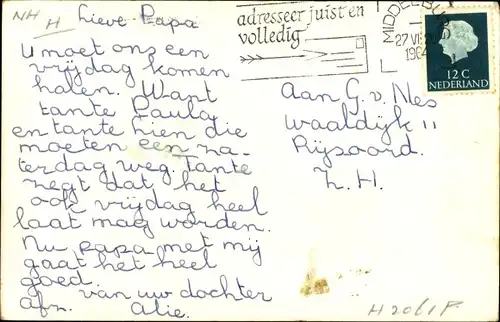 NH
H
Lieve Papa
U moet ons een
vrijdag komen
halen. Want
tante Paula
en tante Lien die
moeten een za-
terdag weg. Tante
zegt dat het
ook vrijdag heel
laat mag worden.
Nu papa met mij
gaat het heel
goed.
van uw dochter
afz. Alie.
adresseer juist en
volledig
MIDDELB
27 VI
1964
12 C
NEDERLAND
Aan G. v. Nes
Waaldijk 11
Rijsoord.
Z. H.